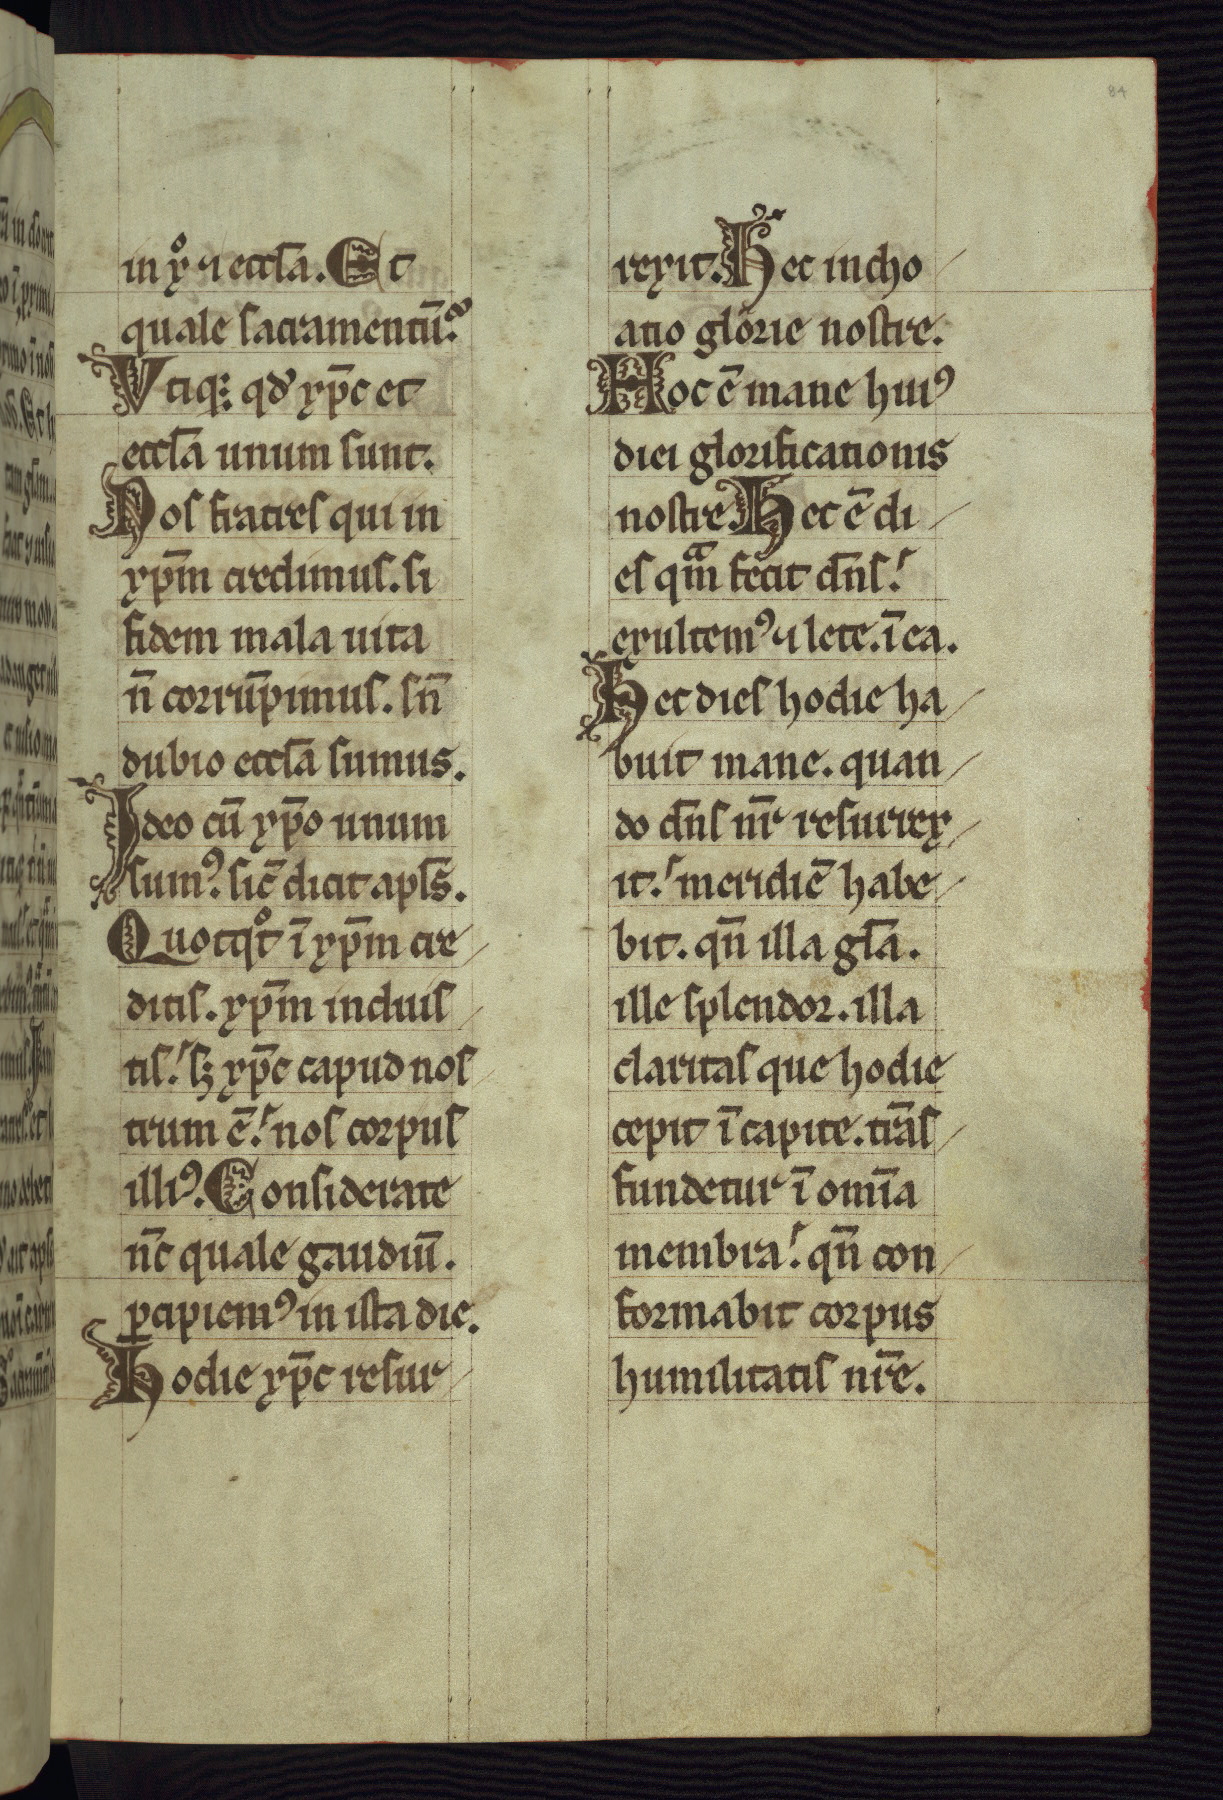 84
in xͦ ⁊ ecclā. Et
quale sacramentū?
Vtiqꝫ qđ xp̄c et
ecclā unum sunt.
Nos fratres qui in
xp̄m credimus. si
fidem mala uita
n̄ corrūpimus. sn̄
dubio ecclā sumus.
Ideo cū xp̄o unum
sumꝰ. sic̄ dicit apls̄.
Quotqͦt ī xp̄m cre
ditis. xp̄m induis
tis. sꝫ xp̄c capud nos
trum ē. nos corpus
illiꝰ. Considerate
nc̄ quale gaudiū.
ꝑcipiemꝰ in ista die.
Hodie xp̄c resur
rexit. Hec incho
atio glorie nostre.
Hoc ē mane huiꝰ
diei glorificationis
nostre Hec ē di
es qᵃm fecit dn̄s.
exultemꝰ ⁊ lete. ī ea.
Hec dies hodie ha
buit mane. quan
do dn̄s nr̄ resurrex
it. meridiē habe
bit. qn̄ illa glā.
ille splendor. illa
claritas que hodie
cepit ī capite. trās
fundetur ī omīa
membra. qn̄ con
formabit corpus
humilitatis nr̄e.